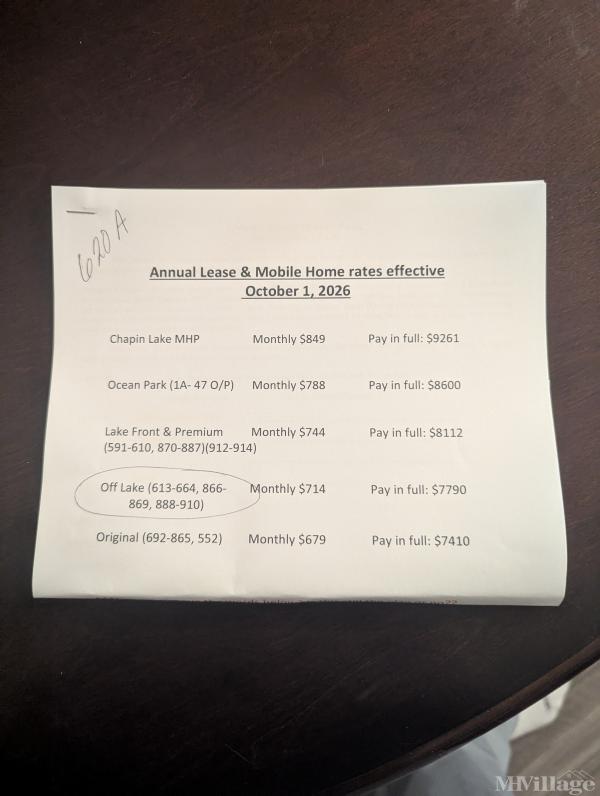 620 A
Annual Lease & Mobile Home rates effective
October 1, 2026
Chapin Lake MHP Monthly $849 Pay in full: $9261
Ocean Park (1A- 47 O/P) Monthly $788 Pay in full: $8600
Lake Front & Premium Monthly $744 Pay in full: $8112
(591-610, 870-887)(912-914)
Off Lake (613-664, 866- Monthly $714 Pay in full: $7790
869, 888-910)
Original (692-865, 552) Monthly $679 Pay in full: $7410
MHVillage